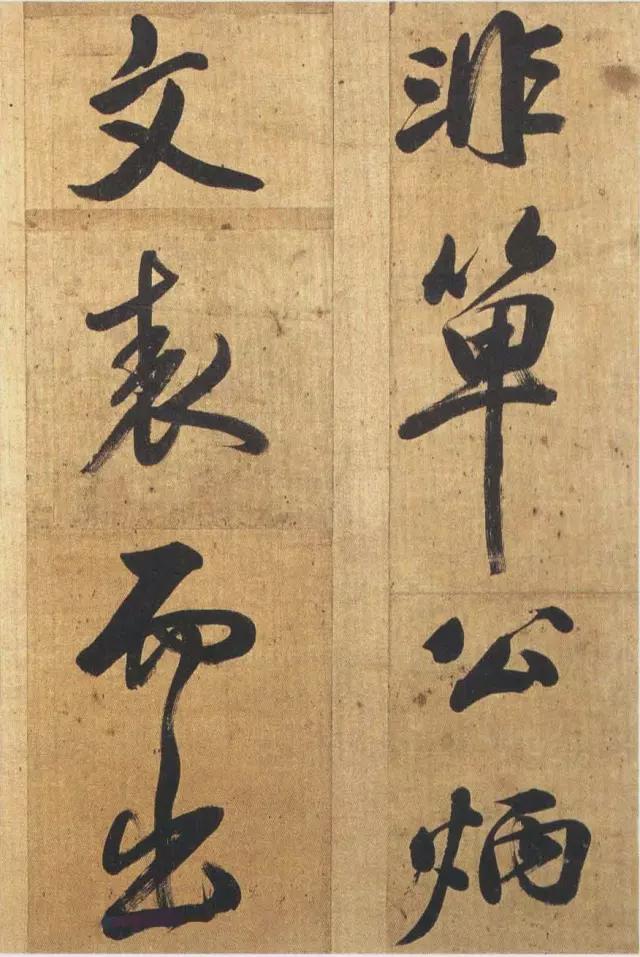 非單公炳
文表而出